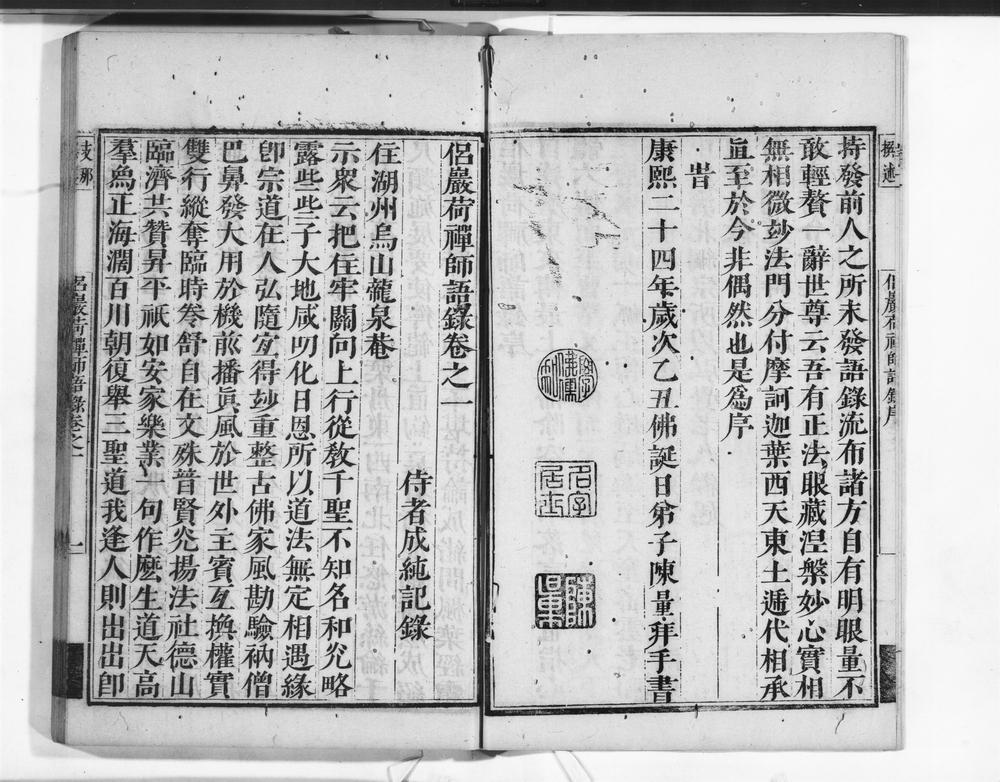 持發前人之所未發語錄流布諸方自有明眼量不
敢輕贅一辭世尊云吾有正法眼藏涅槃妙心實相
無相微玅法門分付摩訶迦葉西天東土遞代相承
直至於今非偶然也是爲序
旹
康熙二十四年歲次乙丑佛誕日弟子陳量拜手書
侶巖荷禪師語錄卷之一
侍者成純記錄
住湖州烏山龍泉菴
示衆云把住牢關向上行從敎千聖不知名和光略
露些些子大地咸明化日恩所以道法無定相遇緣
卽宗道在人弘隨宜得玅重整古佛家風勘驗衲僧
巴鼻發大用於機前播眞風於世外主賓互換權實
雙行縱奪臨時卷舒自在文殊普賢光揚法社德山
臨濟共贊昇平祇如安家樂業一句作麽生道天高
羣烏正海濶百川朝復舉三聖道我逢人則出出卽
侶巖荷禪師語錄卷之一
一
支那
撰述
侶巖荷禪師語錄序